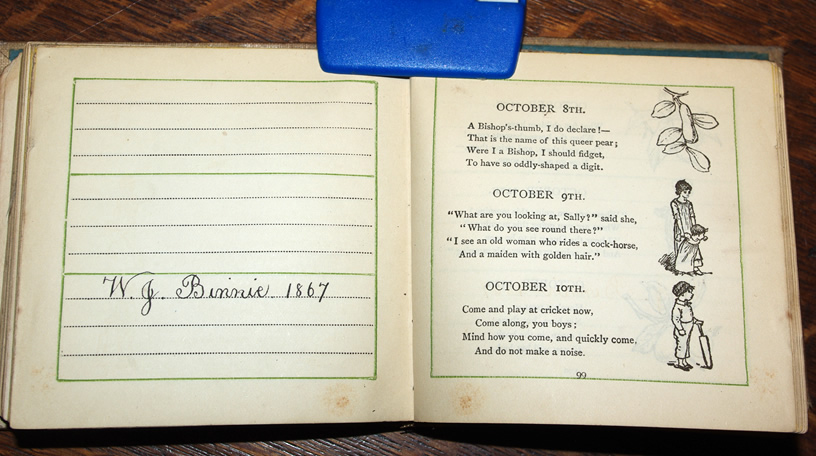 W. J. Binnie. 1867
OCTOBER 8TH.
A Bishop's-thumb, I do declare!—
That is the name of this queer pear;
Were I a Bishop, I should fidget,
To have so oddly-shaped a digit.
OCTOBER 9TH.
"What are you looking at, Sally?" said she,
"What do you see round there?"
"I see an old woman who rides a cock-horse,
And a maiden with golden hair."
OCTOBER 10TH.
Come and play at cricket now,
Come along, you boys;
Mind how you come, and quickly come,
And do not make a noise.
99